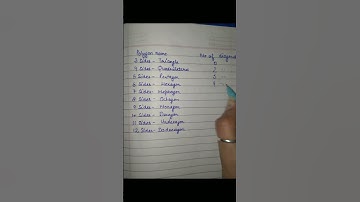 Polygon name No. of diagonals
3 Sides - Triangle 0
4 Sides - Quadrilateral 2
5 Sides - Pentagon 5
6 Sides - Hexagon 9
7 Sides - Heptagon
8 Sides - Octagon
9 Sides - Nonagon
10 Sides - Decagon
11 Sides -
12 Sides -